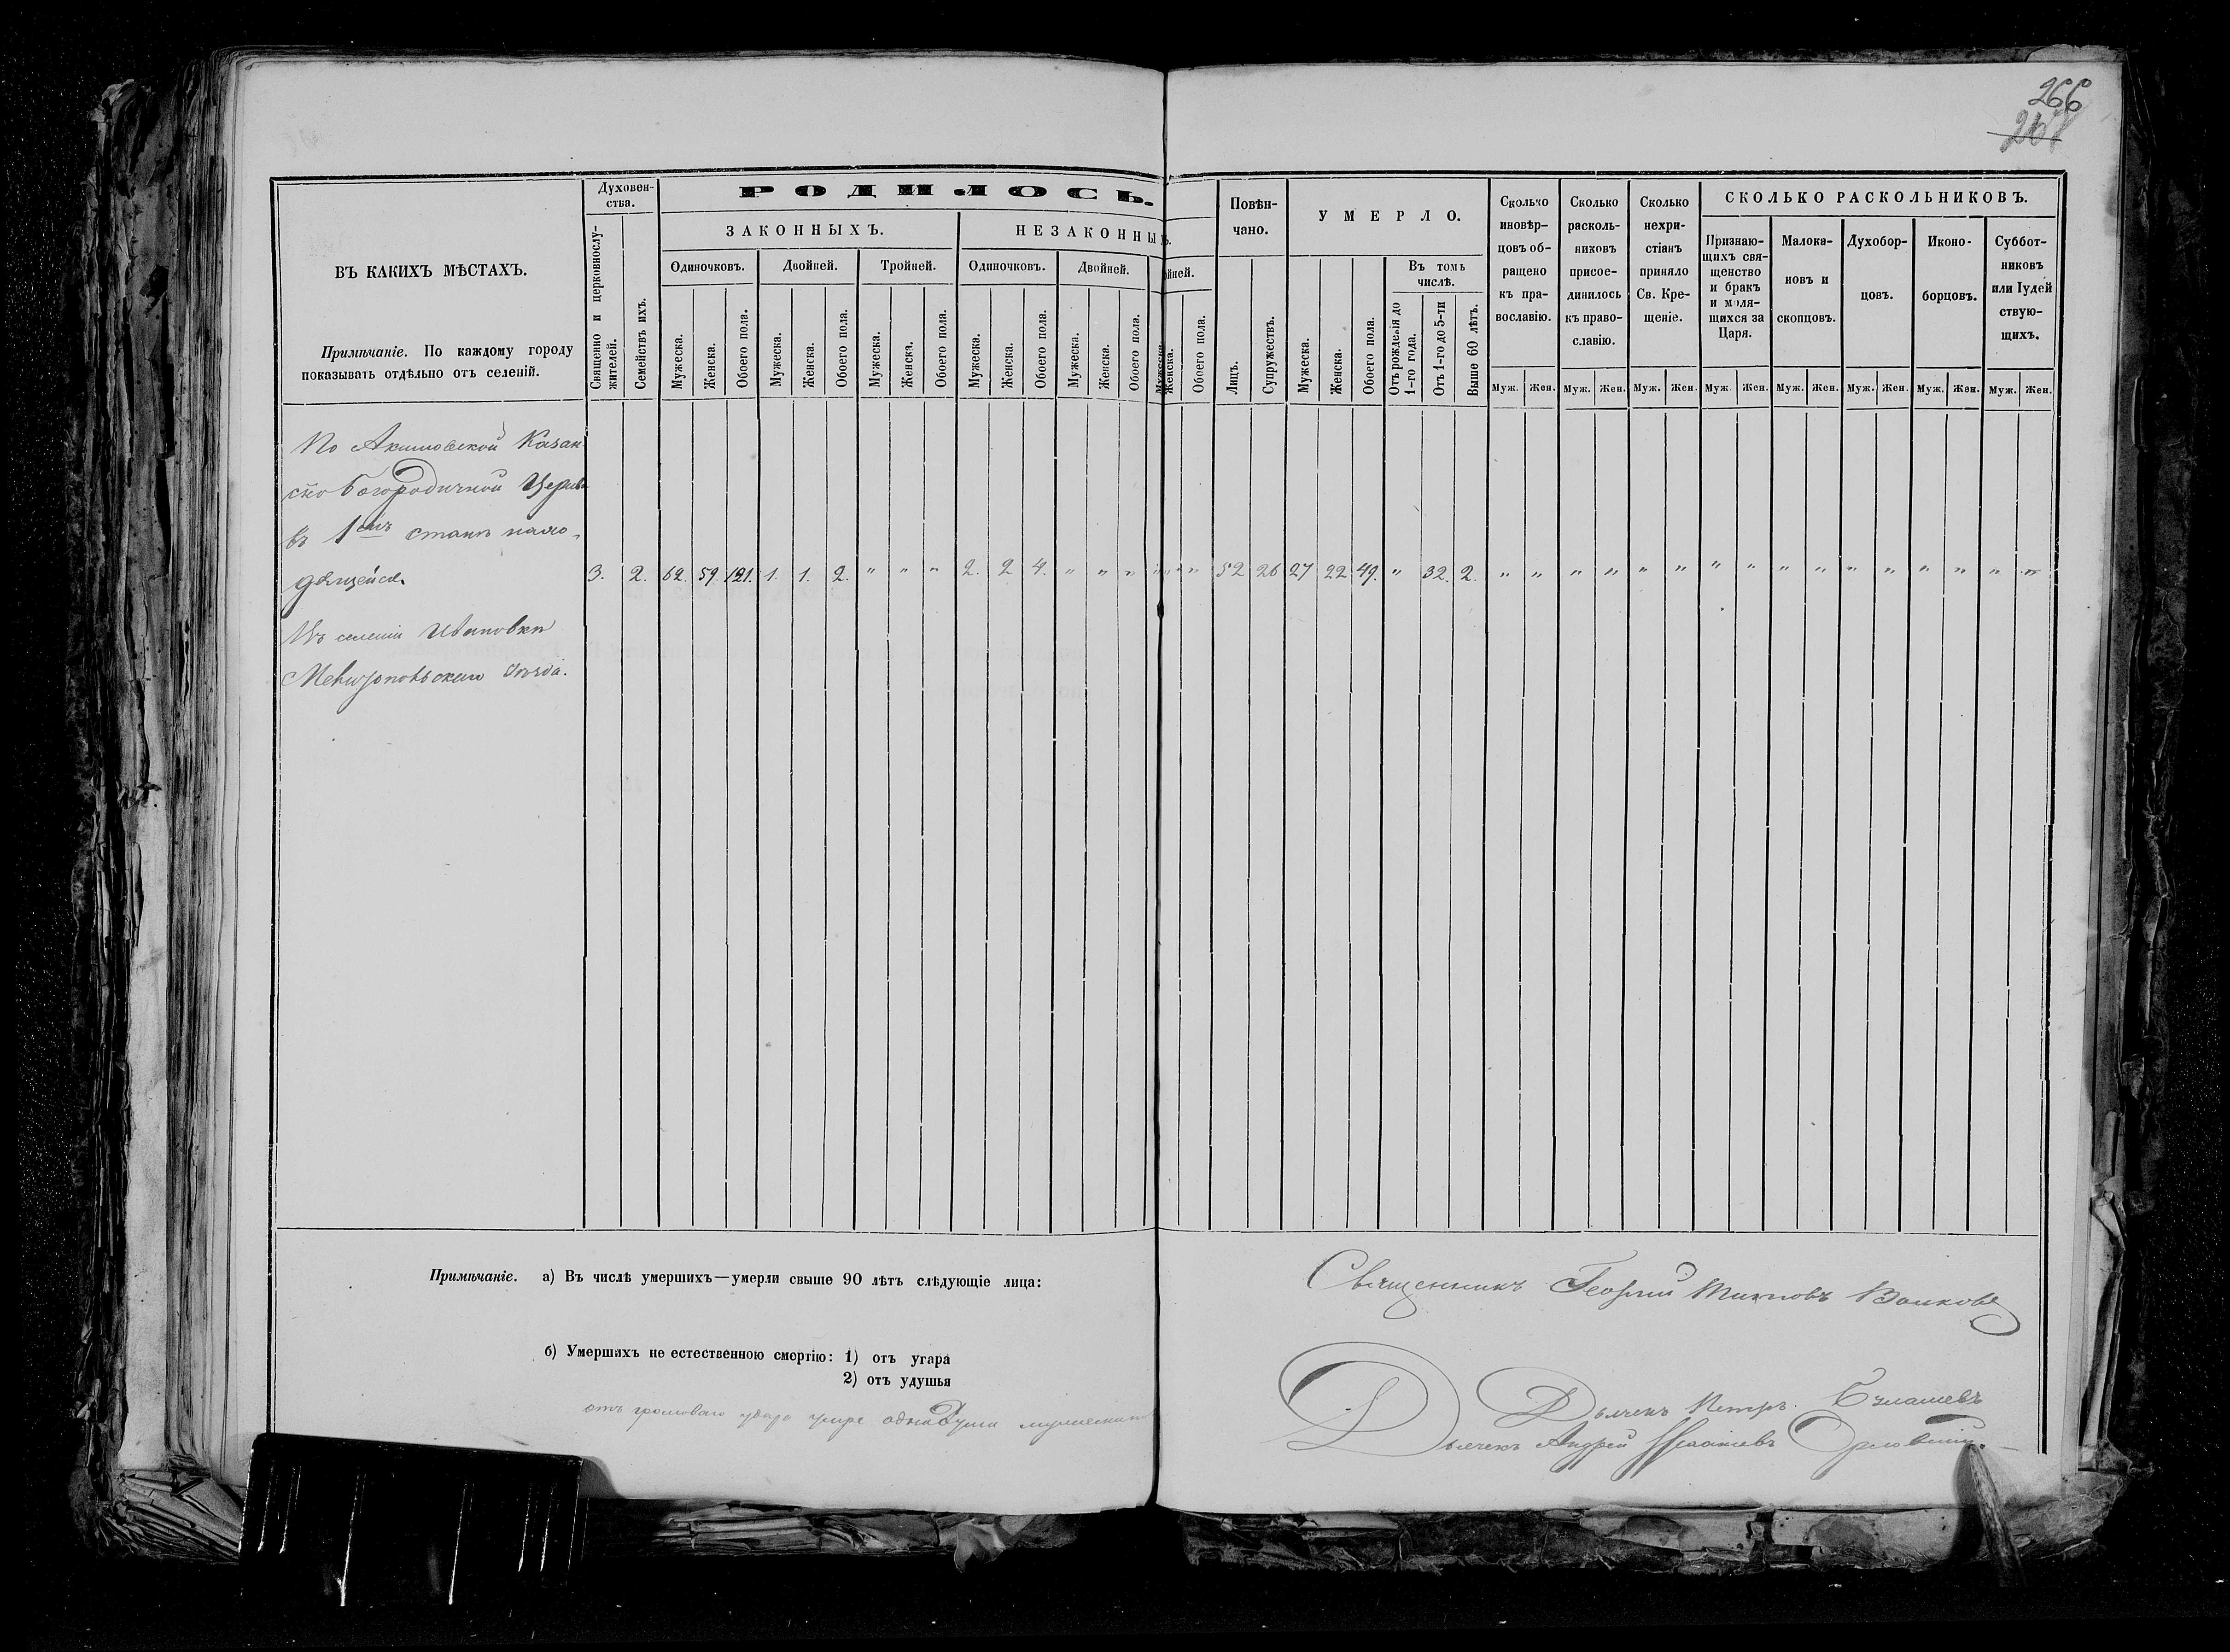 266
ВЪ КАКИХЪ МѢСТАХЪ.
Примѣчаніе. По каждому городу
показывать отдѣльно отъ селеній.
Духовен-
ства.
Священно и церковнослу-
жителей.
Семействъ ихъ.
РОДИЛОСЬ.
ЗАКОННЫХЪ.
НЕЗАКОННЫХЪ.
Одиночковъ.
Двойней.
Тройней.
Одиночковъ.
Двойней.
ойней.
Мужеска.
Женска.
Обоего пола.
Мужеска.
Женска.
Обоего пола.
Мужеска.
Женска.
Обоего пола.
Мужеска.
Женска.
Обоего пола.
Мужеска.
Женска.
Обоего пола.
Мужеска.
Женска.
Обоего пола.
Повѣн-
чано.
Лицъ.
Супружествъ.
УМЕРЛО.
Мужеска.
Женска.
Обоего пола.
Въ томъ
числѣ.
Отъ рожденія до
1-го года.
Отъ 1-го до 5-ти
Выше 60 лѣтъ.
Сколько
иновѣр-
цовъ об-
ращено
къ пра-
вославію.
Муж. Жен.
Сколько
расколь-
никовъ
присое-
динилось
къ право-
славію.
Муж. Жен.
Сколько
нехри-
стіанъ
приняло
Св. Кре-
щеніе.
Муж. Жен.
СКОЛЬКО РАСКОЛЬНИКОВЪ.
Признаю-
щихъ свя-
щенство
и бракъ
и моля-
щихся за
Царя.
Муж. Жен.
Малока-
новъ и
скопцовъ.
Муж. Жен.
Духобор-
цовъ.
Муж. Жен.
Иконо-
борцовъ.
Муж. Жен.
Суббот-
никовъ
или Іудей
ствую-
щихъ.
Муж. Жен.
По Акимовской Казан
ско Богородичной Церкви
въ 1омъ станѣ нахо-
дящейся 3. 2. 62. 59. 121. 1. 1. 2. " " " 2. 2 4. " " " " " " 52 26 27 22 49. " 32. 2. " " " " " " " " " " " " " " " "
Въ селеніи Ивановкѣ
Мелитопольскаго Уѣзда.
Примѣчаніе. а) Въ числѣ умершихъ—умерли свыше 90 лѣтъ слѣдующіе лица:
б) Умершихъ не естественною смертію: 1) отъ угара
2) отъ удушья
отъ громоваго удара умре одна душа
Священникъ Георгій Волковъ
Дьячекъ Петръ
Дьячекъ Андрей Орловскій.